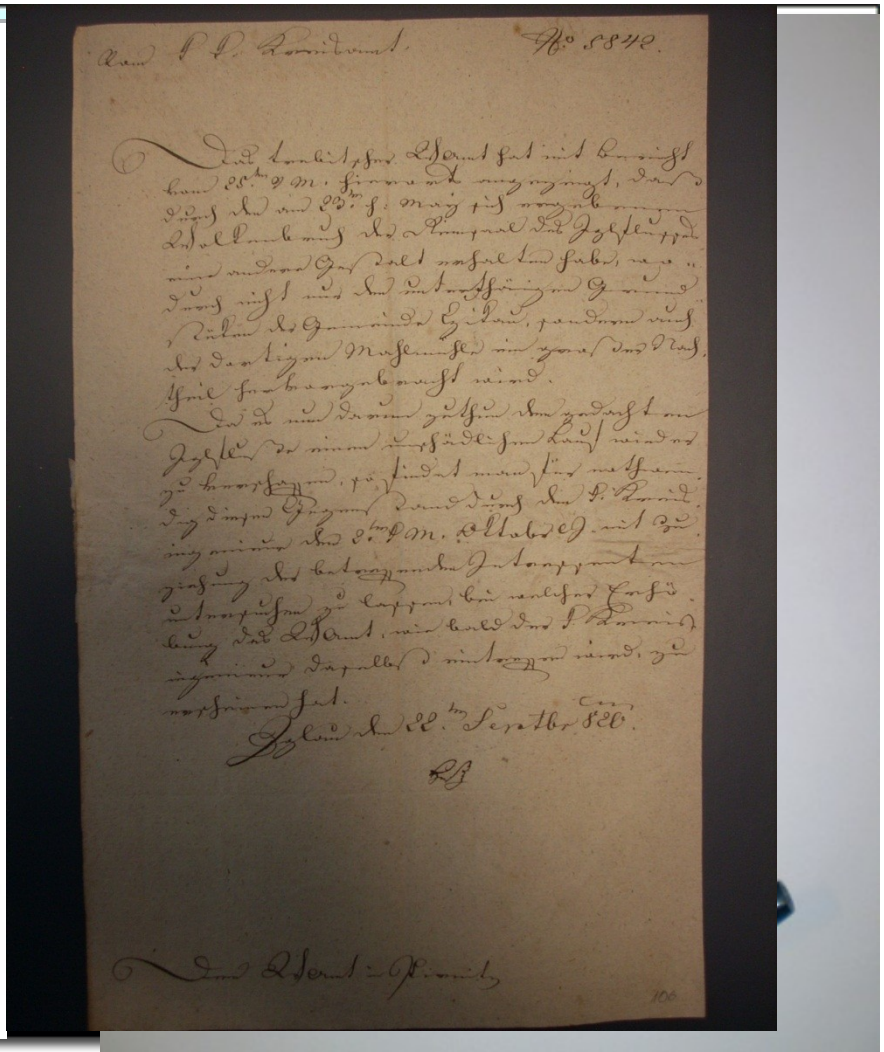 Vom k k. Kreisamt.
No 8842.
Das trebitscher WAmt hat mit Bericht
vom 28ten v M. hierorts angezeigt, daß
durch den am 23ten h: May sich ergebenen
Wolkenbruch der Rinnsaal des Iglflusses
eine andere Gestalt erhalten habe, wo
durch nicht nur den unterthänigen Grund
stüken der Gemeinde sondern auch
der dortigen Mahlmühle ein großer Nach
theil hervorgebracht wird.
Da es nun darum zuthun dem gedachten
Iglfluße einen unschädlichen Lauf wieder
zu verschaffen, so findet man für nothwen
dig diesen Gegenstand durch den k. Kreis
ingenieur den 2ten k M. Oktober mit Zu
ziehung der betreffenden Interessenten
untersuchen zu lassen, bei welcher Erhö
bung das WAmt, wie bald der k Kreis
ingenieur daselbst eintreffen wird, zu
erscheinen hat.
Iglau den 22ten Septbr 826.
Dem WAmt in Pirnitz
106